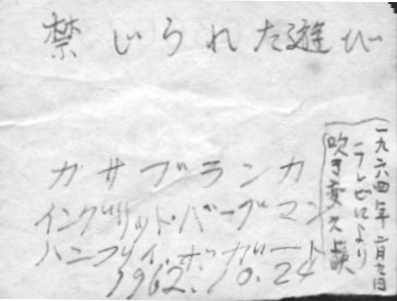 禁じられた遊び
カサブランカ
イングリット・バーグマン
ハンフリィ・ボガート
1962.10.24
一九六四年二月九日
テレビにより
吹き変え上映